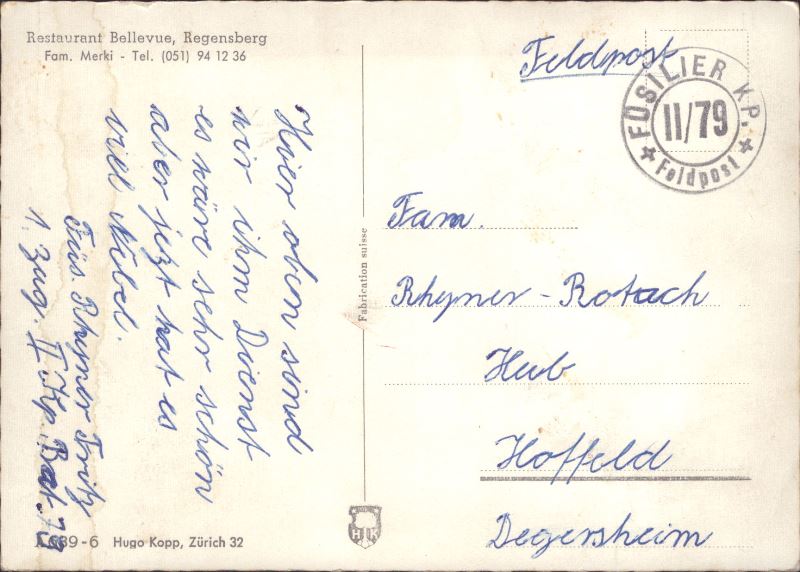 Restaurant Bellevue, Regensberg
Fam. Merki - Tel. (051) 94 12 36
Hier oben sind
wir ihm Dienst
es wäre sehr schön
aber jezt hat es
viel Nebel.
Füs. Rhyner Fritz
1. Zug. II Kp. Bat. 79
Feldpost
FÜSILIER KP.
II/79
Feldpost
Fam.
Rhyner-Rotach
Hub
Hoffeld
Degersheim
Fabrication suisse
HK
689-6 Hugo Kopp, Zürich 32